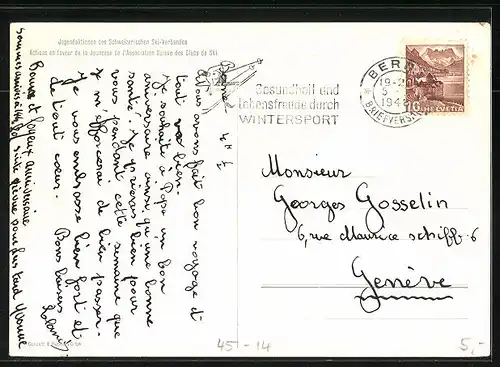 Jugendaktionen des Schweizerischen Ski-Verbandes
Actions en faveur de la Jeunesse de l'Association Suisse des Clubs de Ski
Berne 4h ½
Nous avons fait bon voyage et
tout va bien.
Je souhaite à Papa un bon
anniversaire ainsi qu'une bonne
santé. Je prierais bien pour
vous pendant cette semaine que
je m'efforcerai de bien passer.
Je vous embrasse bien fort et
de tout cœur. Bons baisers
Bonne et joyeux anniversaire
sommes arrivés à
plus tard Yvonne
Gesundheit und
Lebensfreude durch
WINTERSPORT
BERN
19
5
194
BRIEFVERSAND
10 HELVETIA
Monsieur
Georges Gosselin
6, rue Maurice schiff 6
Genève
45-14
5,-